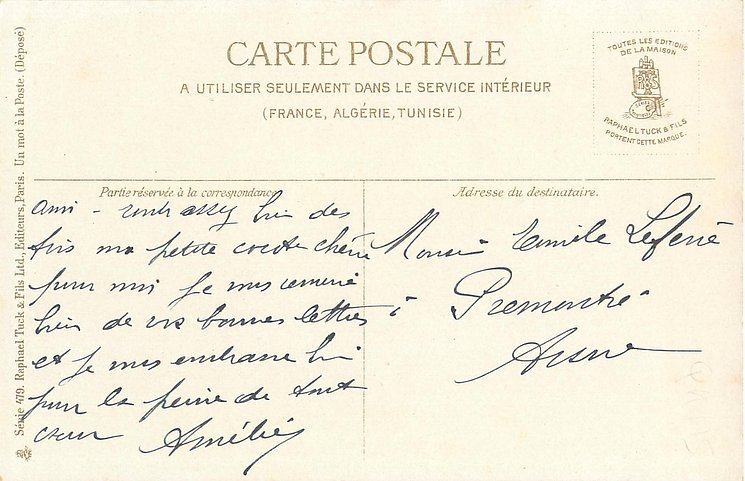 CARTE POSTALE
A UTILISER SEULEMENT DANS LE SERVICE INTÉRIEUR
(FRANCE, ALGÉRIE, TUNISIE)
TOUTES LES EDITIONS
DE LA MAISON
RAPHAEL TUCK & FILS
PORTENT CETTE MARQUE.
Série 479. Raphael Tuck & Fils Ltd., Editeurs, Paris. Un mot à la Poste. (Déposé)
Partie réservée à la correspondance
ami - embrassez bien des
fois ma petite cocote chérie
pour moi je vous remercie
bien de vos bonnes lettres
et je vous embrasse bien
pour la peine de tout
cœur Amélie
Adresse du destinataire.
Monsieur Emile
à Premontré
Aisne